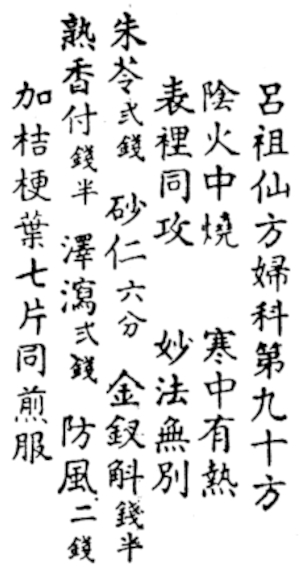 呂祖仙方婦科第九十方
陰火中燒　寒中有熱
表裡同攻　妙法無別
朱苓弍錢　砂仁六分　金釵斛錢半
熟香付錢半　澤瀉弍錢　防風二錢
加桔梗葉七片同煎服